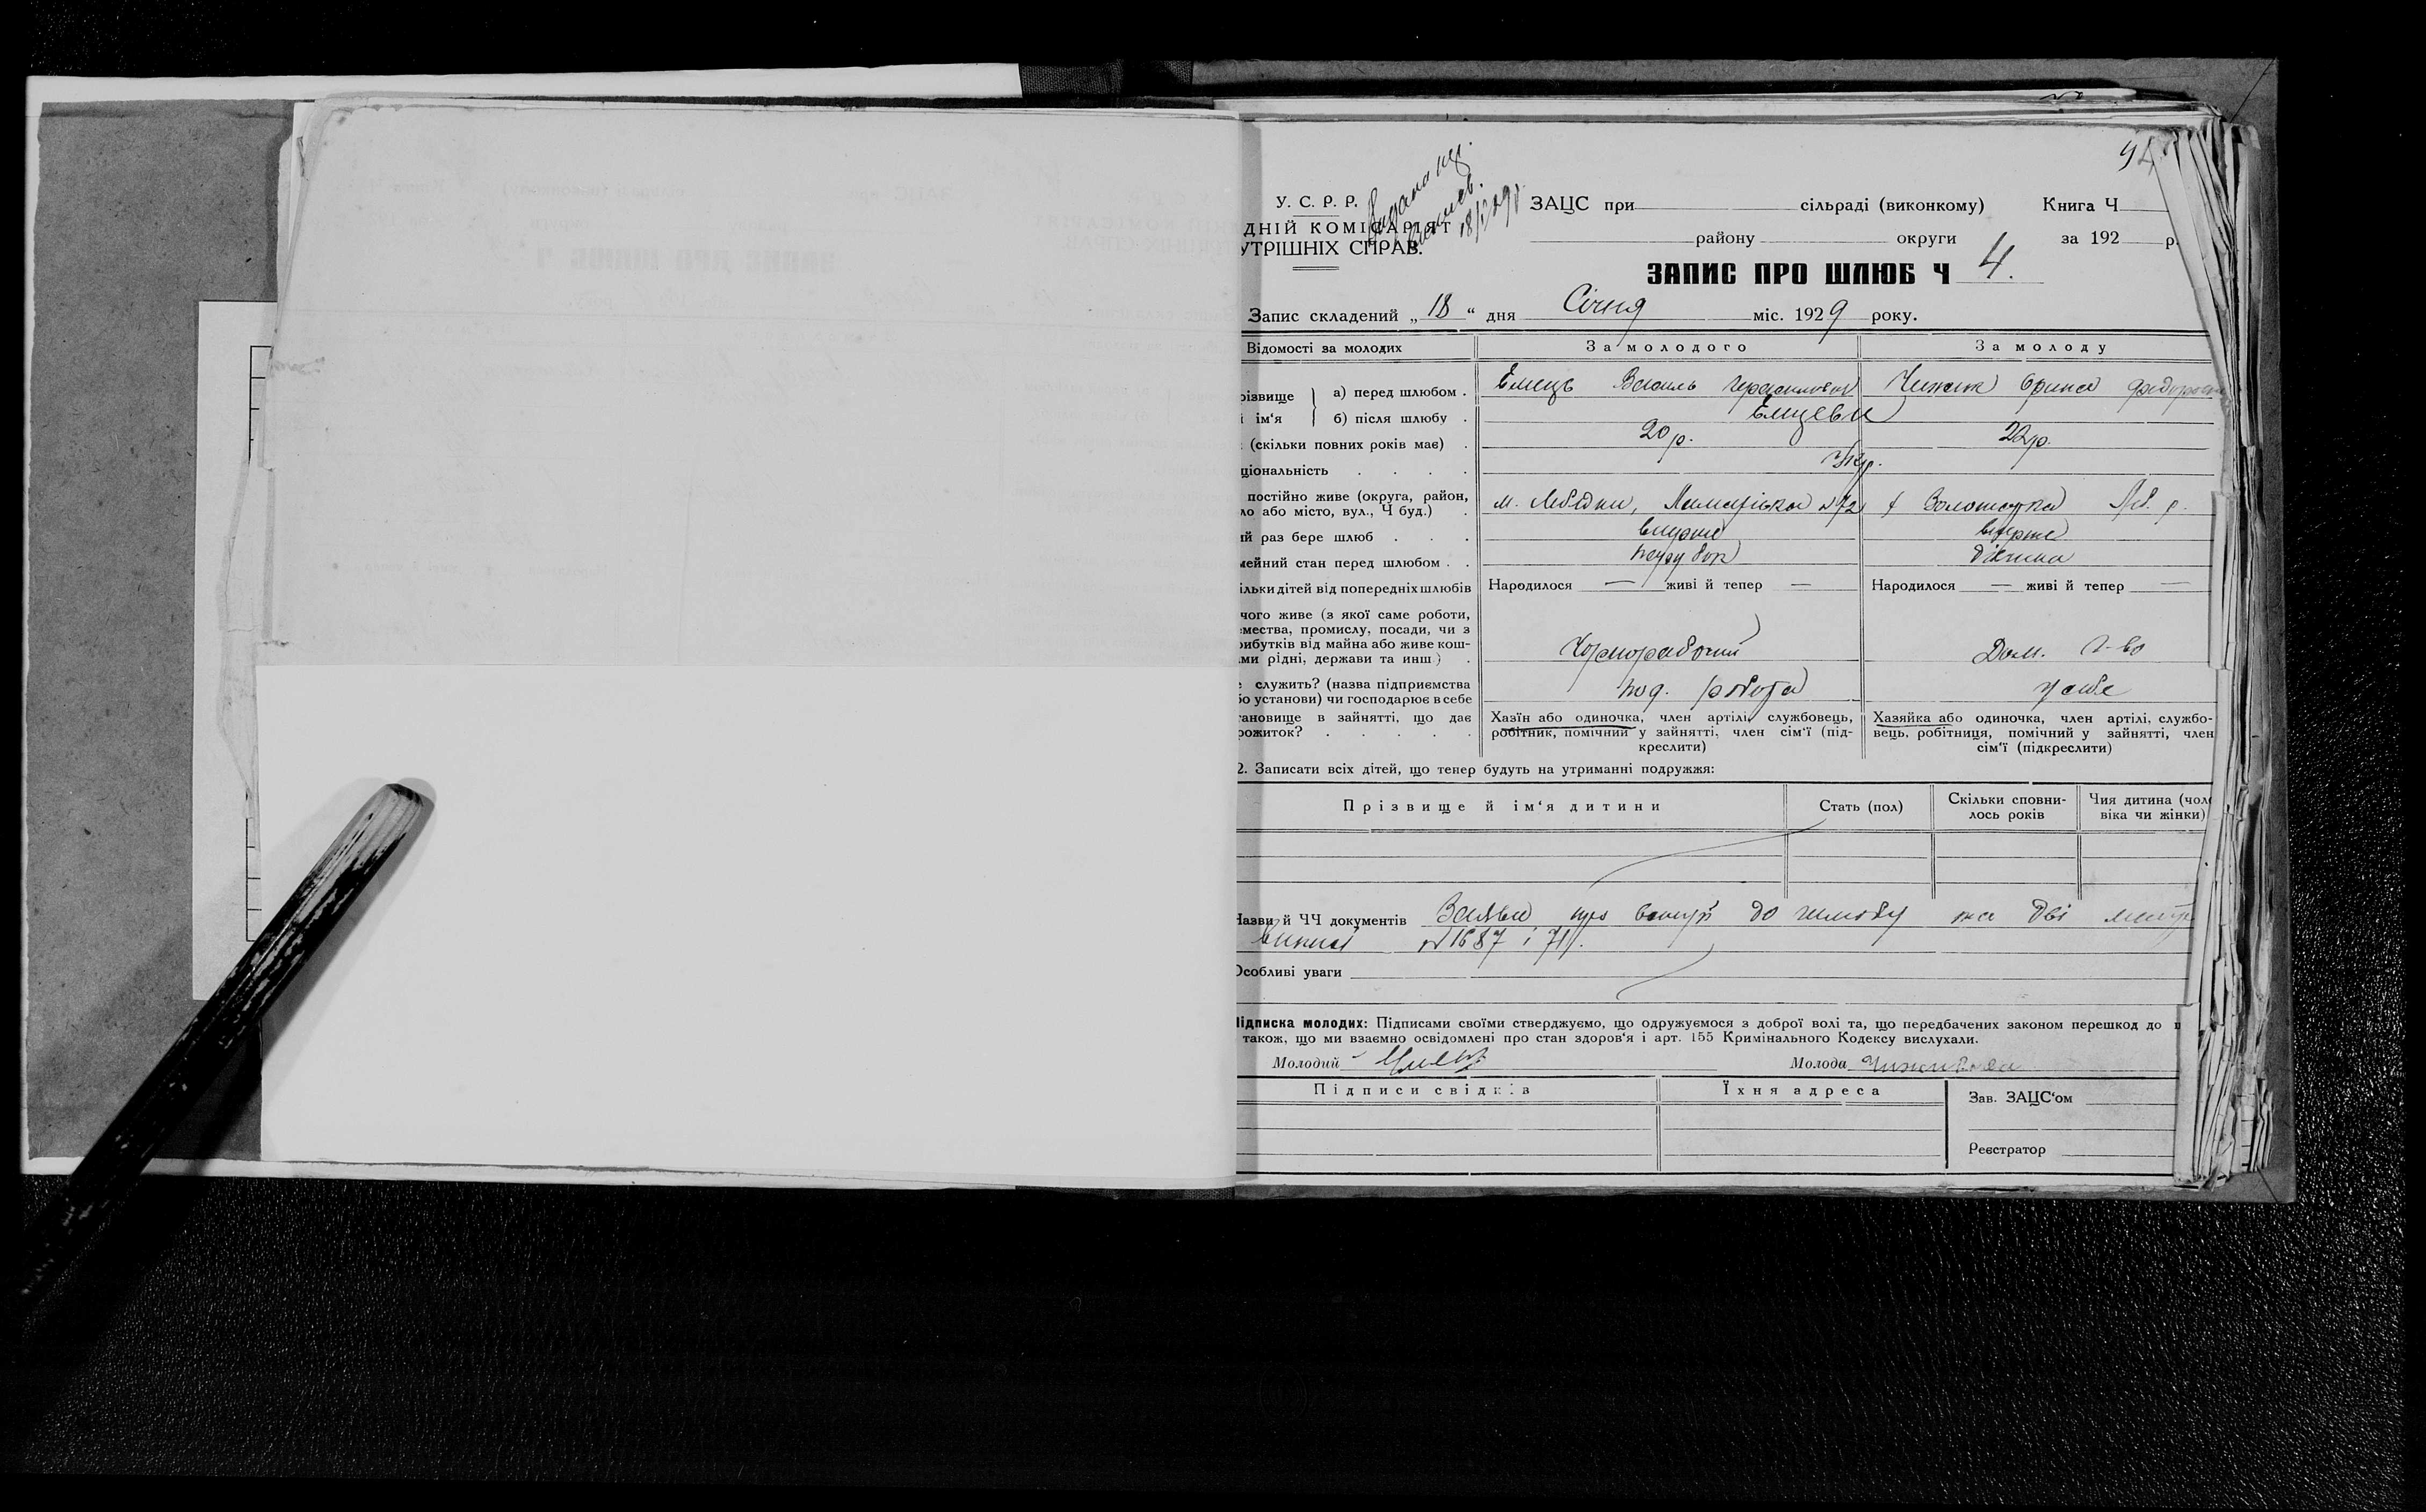 94
У. С. Р. Р.
ДНІЙ КОМІСАРІЯТ
УТРІШНІХ СПРАВ.
18/I 29р.
ЗАЦС при сільраді (виконкому) Книга Ч
району округи за 192 р.
ЗАПИС ПРО ШЛЮБ Ч 4.
Запис складений „ 18 “ дня Січня міс. 1929 року.
Відомості за молодих За молодого За молоду
різвище а) перед шлюбом . Ємець Василь Чижик Орина
і ім‘я б) після шлюбу .
20 р. 22 р.
(скільки повних років має) .
Укр.
ціональність . . . .
постійно живе (округа, район,
ло або місто, вул., Ч буд.) . м. Лебедин, №72 Леб. р.
ий раз бере шлюб . . . вперше вперше
мейний стан перед шлюбом . . парубок дівчина
ільки дітей від попередніх шлюбів Народилося — живі й тепер — Народилося — живі й тепер —
чого живе (з якої саме роботи,
мества, промислу, посади, чи з
рибутків від майна або живе кош-
ми рідні, держави та инш.) . Чорноробочий Дом. г-во
служить? (назва підприємства
бо установи) чи господарює в себе под. робота у себе
тановище в зайнятті, що дає Хазїн або одиночка, член артілі, службовець, Хазяйка або одиночка, член артілі, службо-
рожиток? . . . . . робітник, помічний у зайнятті, член сім‘ї (під- вець, робітниця, помічний у зайнятті, член
креслити) сім‘ї (підкреслити)
2. Записати всіх дітей, що тепер будуть на утриманні подружжя:
Прізвище й ім‘я дитини Стать (пол) Скільки сповни- Чия дитина (чоло
лось років віка чи жінки)
Назви й ЧЧ документів Заява про вступ до шлюбу та дві
виписі №1687 і 71.
Особливі уваги
Підписка молодих: Підписами своїми стверджуємо, що одружуємося з доброї волі та, що передбачених законом перешкод до
також, що ми взаємно освідомлені про стан здоров‘я і арт. 155 Кримінального Кодексу вислухали.
Молодий Молода
Підписи свідків Їхня адреса Зав. ЗАЦС‘ом
Реєстратор